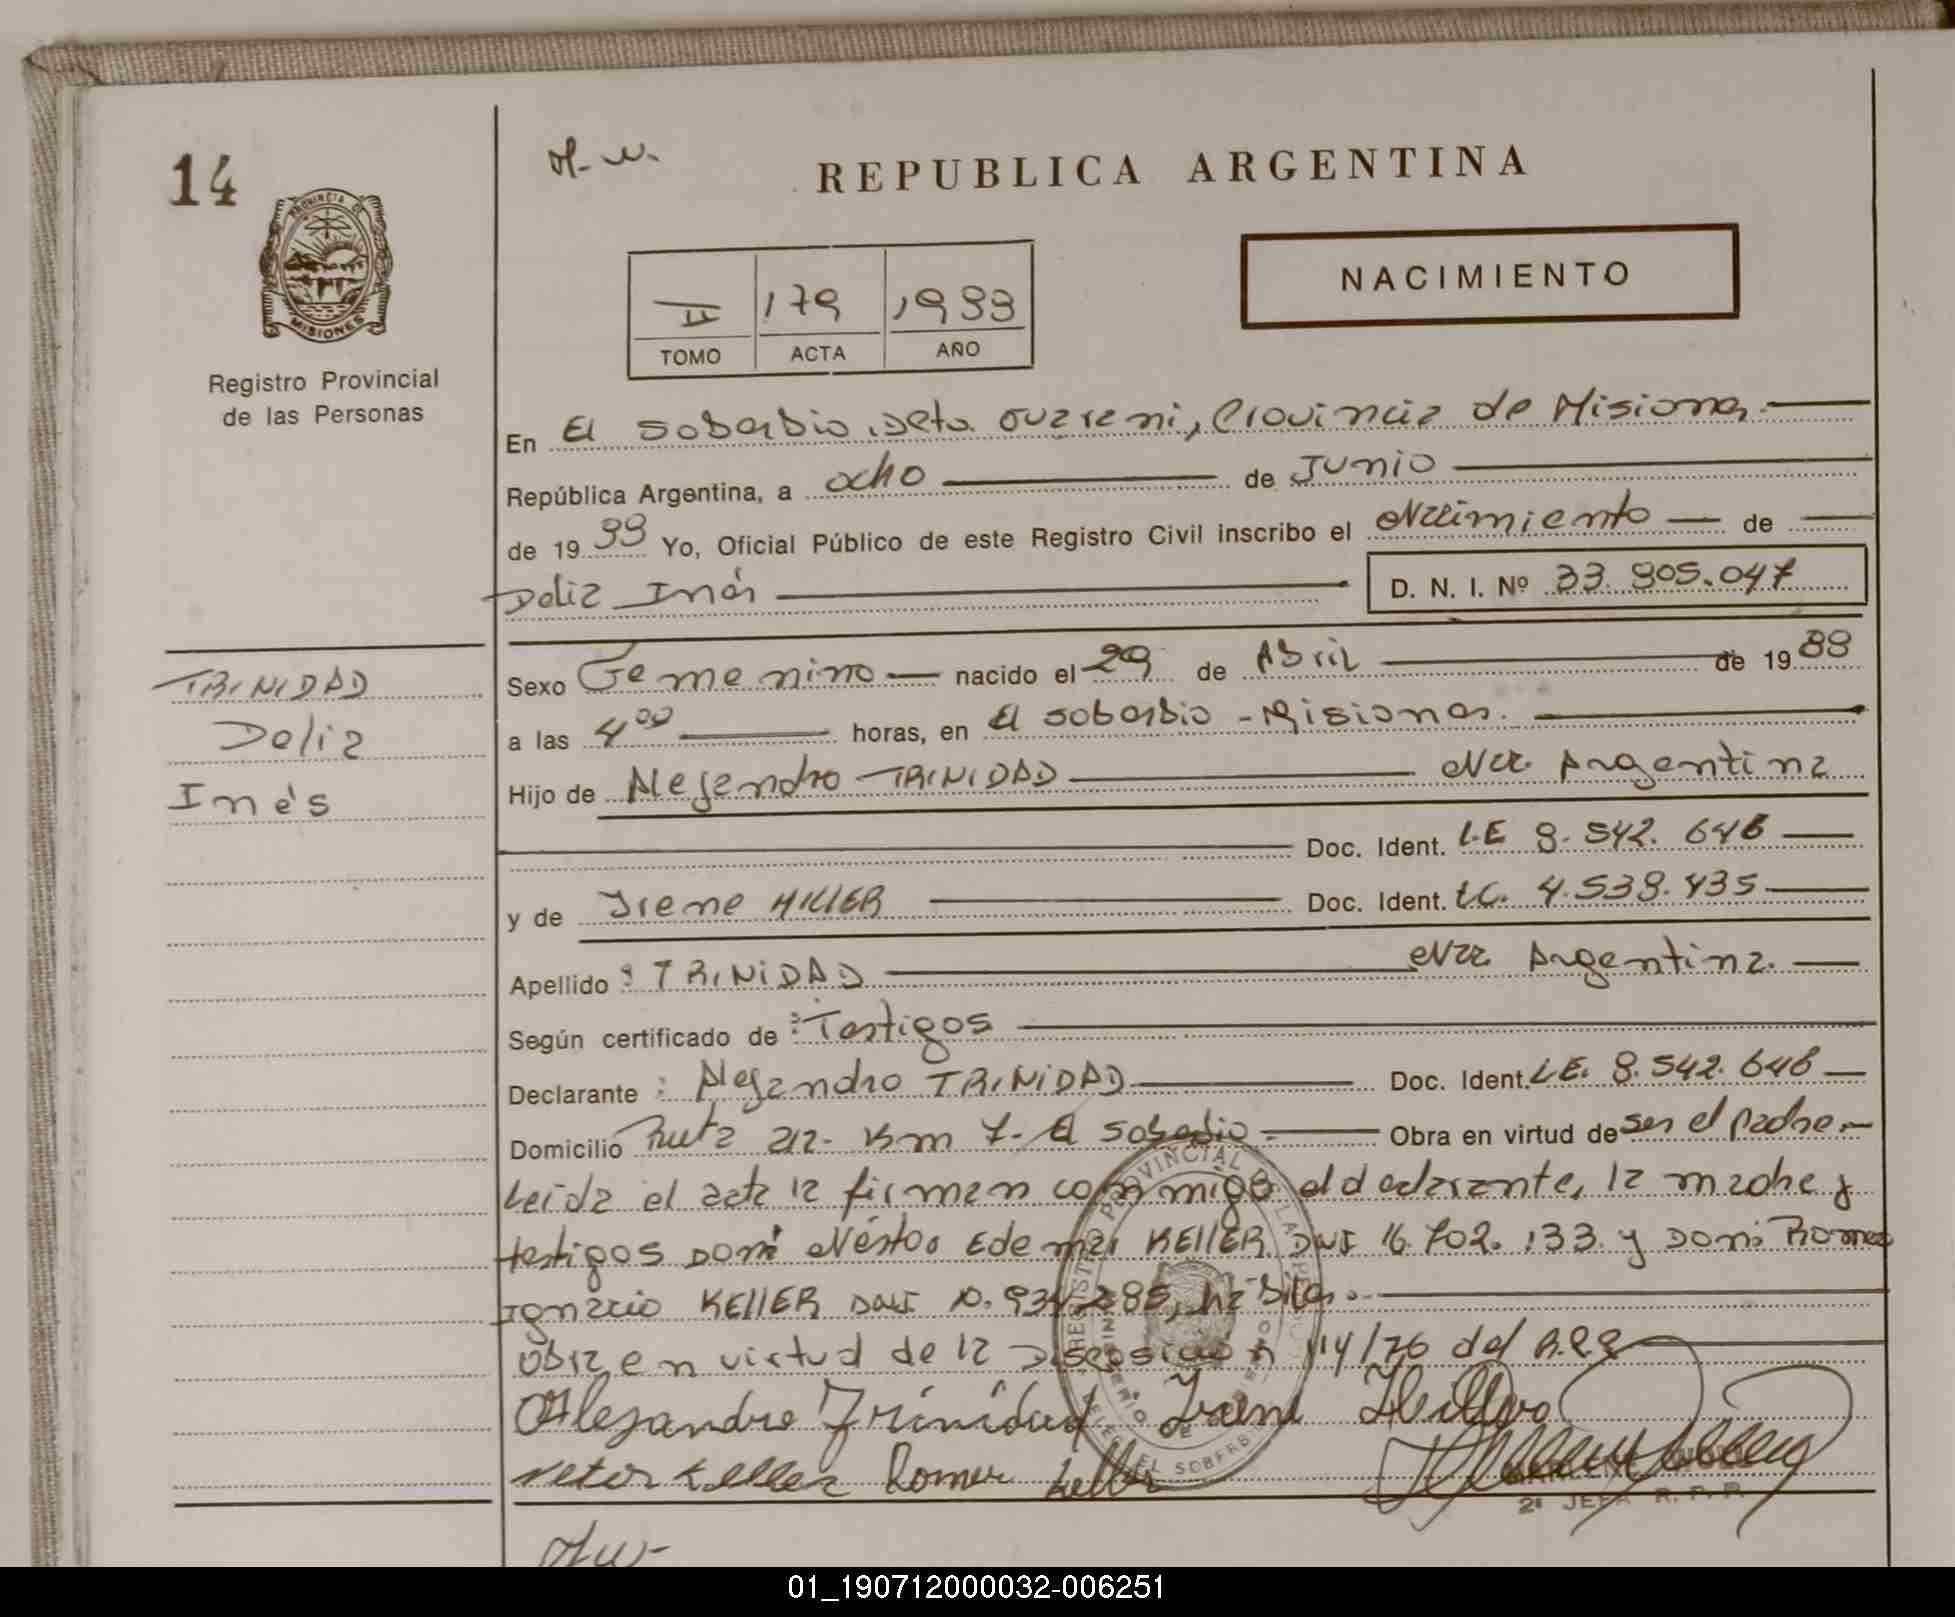 14
H-N.
REPUBLICA ARGENTINA
PROVINCIA DE
MISIONES
NACIMIENTO
II 179 1988
TOMO ACTA AÑO
Registro Provincial
de las Personas
En El Soberbio, Dpto. Guarani, Provincia de Misiones.
República Argentina, a ocho de Junio
de 19 88 Yo, Oficial Público de este Registro Civil inscribo el Nacimiento de
Delia Inés D. N. I. Nº 33.905.047
TRINIDAD
Delia
Inés
Sexo Femenino nacido el 29 de Abril de 19 88
a las 4 00 horas, en El Soberbio - Misiones.
Hijo de Alejandro TRINIDAD Nac. Argentina
Doc. Ident. L.E 8.542.646
y de Irene HILLER Doc. Ident. LC. 4.538.435
Apellido : TRINIDAD Nac Argentina.
Según certificado de : Testigos
Declarante : Alejandro TRINIDAD Doc. Ident. LE. 8.542.646
Domicilio Ruta 212- Km 7- El Soberbio Obra en virtud de ser el padre.
Leida el acta la firman conmigo el declarante, la madre y
testigos Don: Néstor Edemar KELLER DNI 16.702.133 y Don: Romeo
Ignacio KELLER DNI 10.934.285, hábiles.
Obra en virtud de la Disposición 114/76 del R.P.P
Alejandro Trinidad Irene Hiller
Netor Keller Romeu Keller
REGISTRO PROVINCIAL DE LAS PERSONAS
2ª JEFA R. P. P.
01_190712000032-006251